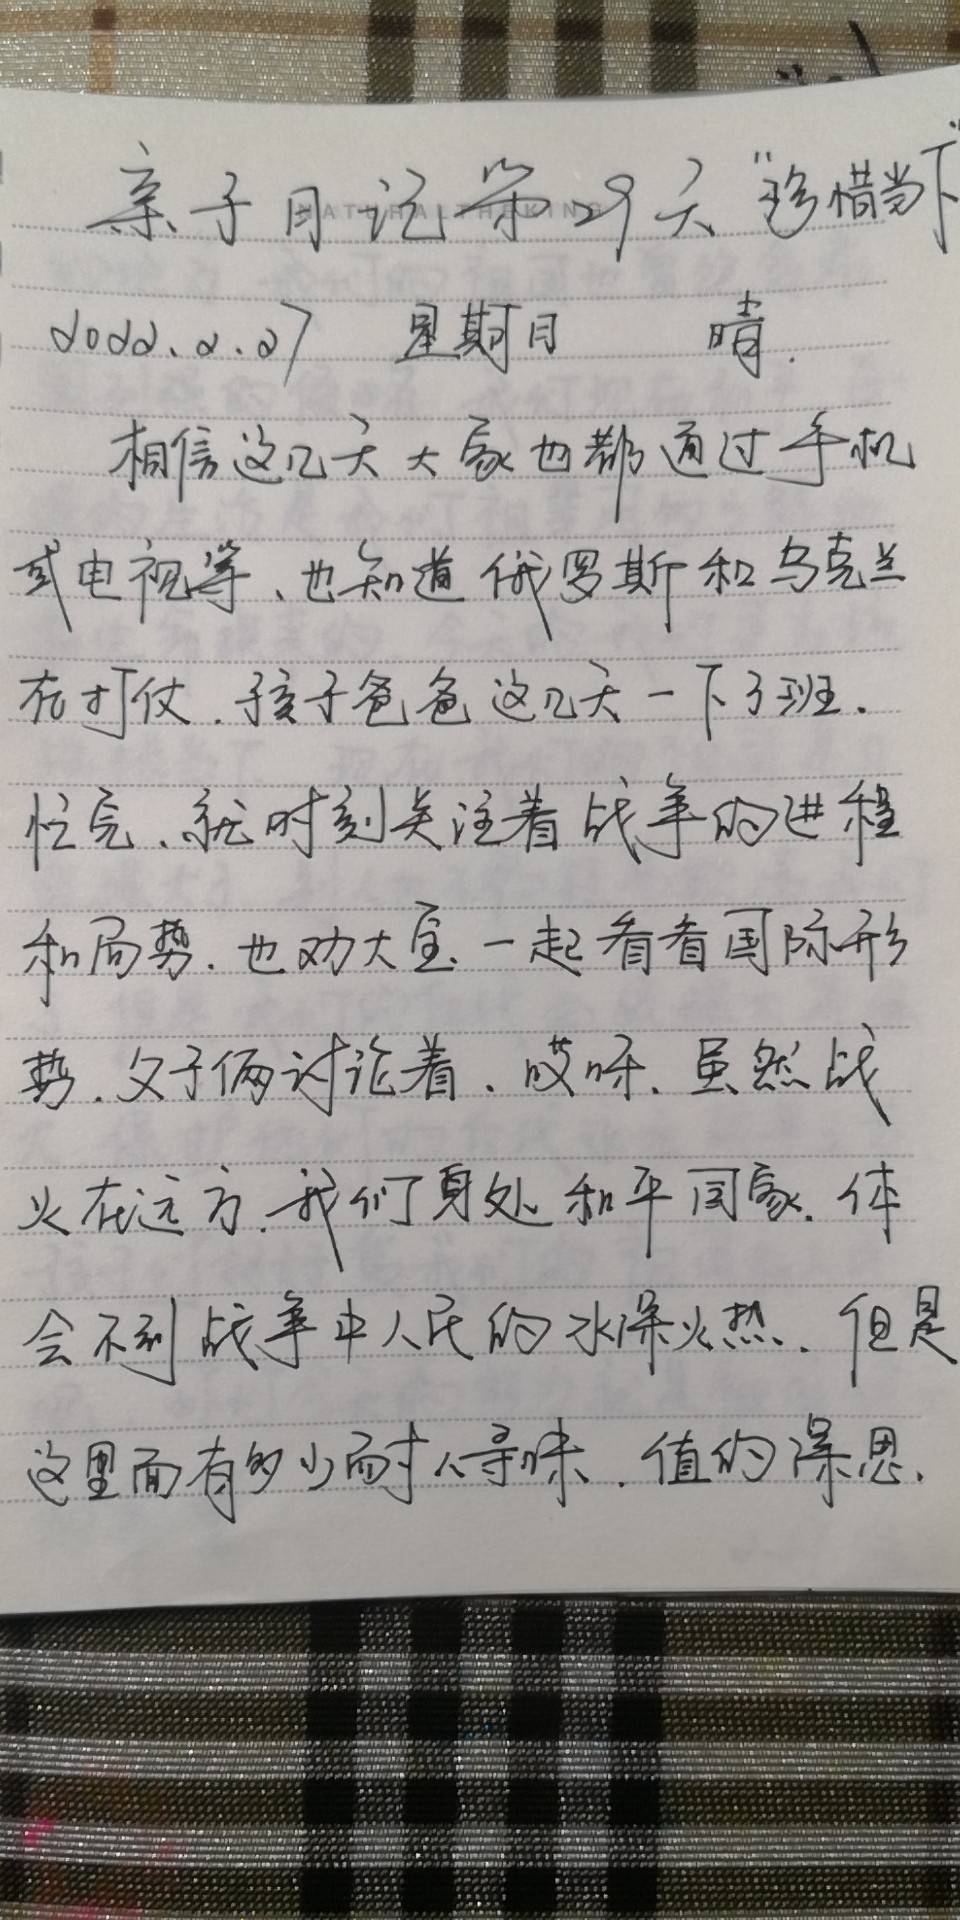 亲子日记第29天“珍惜当下”
NATURALTHEKING
2022.2.27 星期日 晴.
相信这几天大家也都通过手机
或电视等、也知道俄罗斯和乌克兰
在打仗.孩子爸爸这几天一下了班.
忙完、就时刻关注着战争的进程
和局势.也劝大宝一起看看国际形
势.父子俩讨论着.哎呀.虽然战
火在远方.我们身处和平国家.体
会不到战争中人民的水深火热.但是
这里面有多少耐人寻味.值的深思.